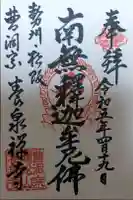 奉拝
令和五年四月十九日
南無釋迦牟尼佛
勢州小俣
曹洞宗 養泉禅寺